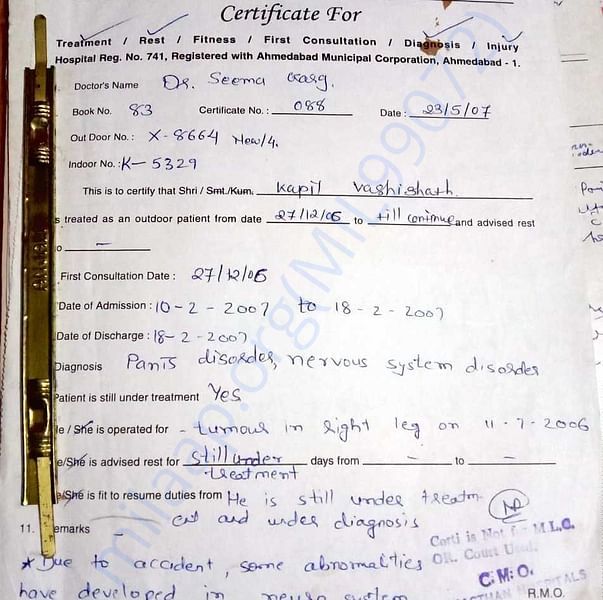 Certificate For
Treatment / Rest / Fitness / First Consultation / Diagnosis / Injury
Hospital Reg. No. 741, Registered with Ahmedabad Municipal Corporation, Ahmedabad - 1.
Doctor's Name Dr. Seema Garg.
Book No. 83 Certificate No. : 088 Date : 23/5/07
Out Door No. : X-8664 New/4.
Indoor No. : K-5329
This is to certify that Shri / Smt./Kum. Kapil Vashishath.
s treated as an outdoor patient from date 27/12/06 to till continue and advised rest
o –
First Consultation Date : 27/12/06
Date of Admission : 10-2-2007 to 18-2-2007
Date of Discharge : 18-2-2007
Diagnosis Panis disosder, nervous system disosder
Patient is still under treatment Yes
le / She is operated for - tumous in right leg on 11-7-2006
e/She is advised rest for still under treatment days from – to –
e/She is fit to resume duties from He is still under treatm
ent and under diagnosis
11. emarks –
Certi is Not for M.L.C.
OR. Court Used.
* Due to accident, some abnormalities
C.M.O.
HOSPITALS
have developed in system
R.M.O.
milaap.org(MIL99072)